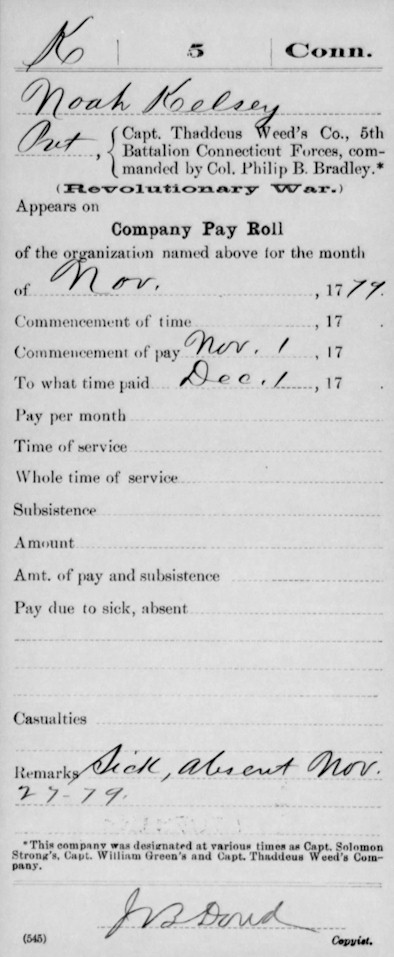 K 5 Conn.
Noah Kelsey
Pvt, { Capt. Thaddeus Weed's Co., 5th
Battalion Connecticut Forces, com-
manded by Col. Philip B. Bradley.*
(Revolutionary War.)
Appears on
Company Pay Roll
of the organization named above for the month
of Nov. , 1779.
Commencement of time , 17 .
Commencement of pay Nov. 1 , 17 .
To what time paid Dec. 1 , 17 .
Pay per month
Time of service
Whole time of service
Subsistence
Amount
Amt. of pay and subsistence
Pay due to sick, absent
Casualties
Remarks Sick, absent Nov.
27-79.
*This company was designated at various times as Capt. Solomon
Strong's, Capt. William Green's and Capt. Thaddeus Weed's Com-
pany.
J B
(545) Copyist.